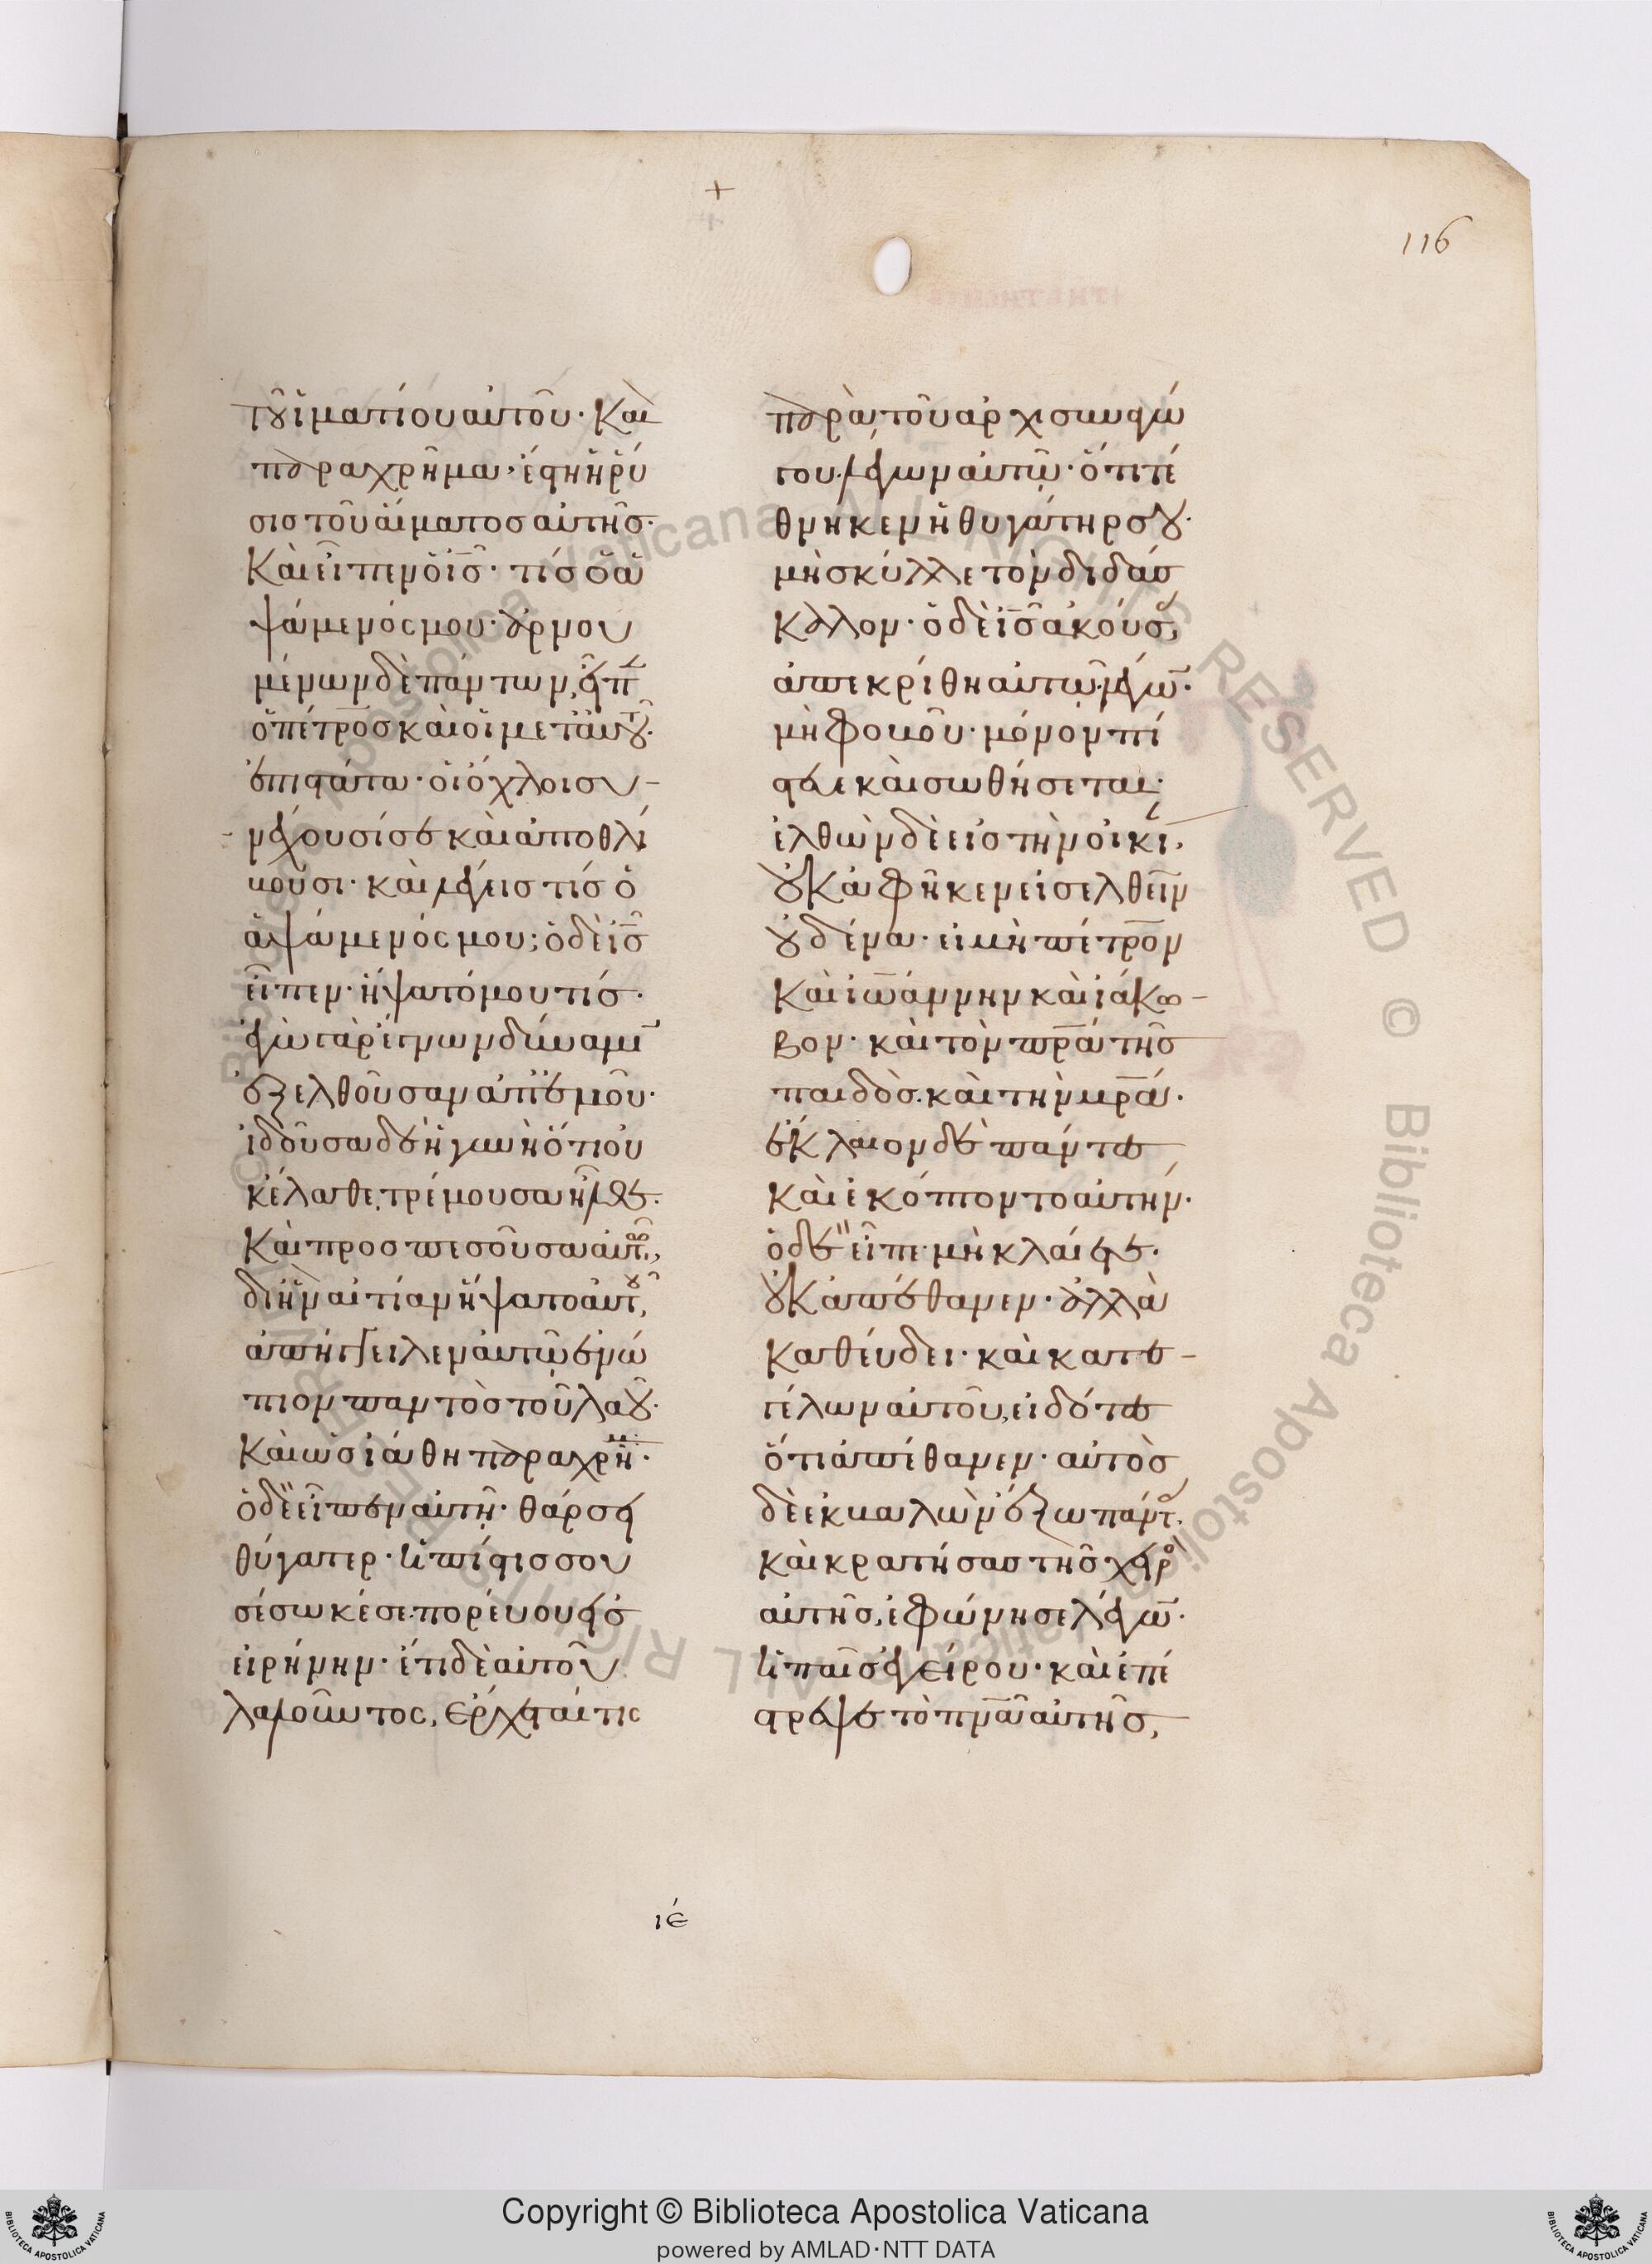 +
116
τοῦ ἱματίου αὐτοῦ· Καὶ
παραχρῆμα, ἔστη ἡ ρύ
σις τοῦ αἵματος αὐτῆς·
Καὶ εἶπεν ὁ ις̅· τίς ὁ ἁ
ψάμενός μου· ἀρνου
μένων δὲ πάντων, εἶπ
ὁ πέτρος καὶ οἱ μετ' αὐτοῦ·
ἐπιστάτα· οἱ ὄχλοι συ-
νέχουσί σε καὶ ἀποθλί
βουσι· καὶ λέγεις τίς ὁ
ἁψάμενός μου; ὁ δὲ ις̅
εἶπεν· ἥψατό μου τίς·
ἐγὼ γὰρ ἔγνων δύναμιν
ἐξελθοῦσαν ἀπ' ἐμοῦ·
ἰδοῦσα δὲ ἡ γυνὴ ὅτι οὐ
κ ἔλαθε, τρέμουσα ἦλθε·
Καὶ προσπεσοῦσα αὐτῶ,
δι' ἣν αἰτίαν ἥψατο αὐτοῦ,
ἀπήγγειλεν αὐτῶ ἐνώ
πιον παντὸς τοῦ λαοῦ·
Καὶ ὡς ἰάθη παραχρῆμ·
ὁ δὲ εἶπεν αὐτῆ· θάρσει
θύγατερ· ἡ πίστις σου
σέσωκέ σε· πορεύου εἰς
εἰρήνην· ἔτι δὲ αὐτοῦ
λαλοῦντος, ἔρχεταί τις
παρὰ τοῦ ἀρχισυναγώ
γου λέγων αὐτῶ· ὅτι τέ
θνηκεν ἡ θυγάτηρ σου·
μὴ σκύλλε τὸν διδάσ
καλον· ὁ δὲ ις̅ ἀκούσ,
ἀπεκρίθη αὐτῶ λέγων·
μὴ φοβοῦ· μόνον πί
στευε καὶ σωθήσεται·
ἐλθὼν δὲ εἰς τὴν οἰκί,
οὐκ ἀφῆκεν εἰσελθεῖν
οὐδένα· εἰ μὴ πέτρον
Καὶ ἰωάννην καὶ ἰάκω-
βον· καὶ τὸν πρ̅α τῆς
παιδὸς· καὶ τὴν μρ̅α·
ἔκλαιον δὲ πάντες
Καὶ ἐκόπτοντο αὐτήν·
ὁ δὲ εἶπε· μὴ κλαίετε·
οὐκ ἀπέθανεν· ἀλλὰ
καθεύδει· καὶ κατε-
γέλων αὐτοῦ, εἰδότες
ὅτι ἀπέθανεν· αὐτὸς
δὲ ἐκβαλὼν ἔξω πάντ,
καὶ κρατήσας τῆς χειρὸ
αὐτῆς, ἐφώνησε λέγων·
ἡ παῖς ἐγείρου· καὶ ἐπέ
στρεψε τὸ πν̅α αὐτῆς,
ιέ
© Biblioteca Apostolica Vaticana ALL RIGHTS RESERVED © Biblioteca Apostolica Vaticana ALL RIGHTS RESERVED
Copyright © Biblioteca Apostolica Vaticana
powered by AMLAD·NTT DATA
BIBLIOTECA APOSTOLICA VATICANA
BIBLIOTECA APOSTOLICA VATICANA